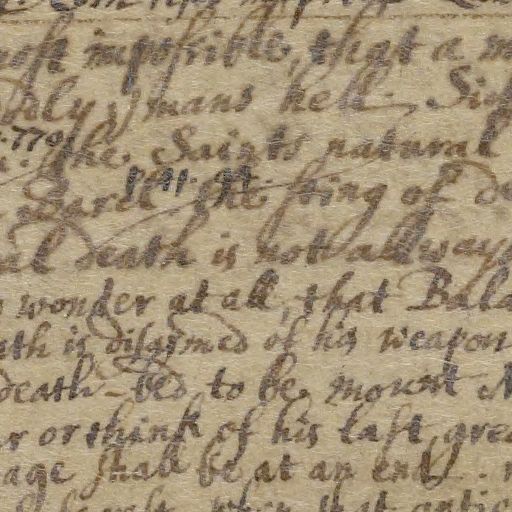 most impossible, that a m
mans hell. Sick
770. the Saints natural
the sting of de
death is not allways
wonder at all, that Bala
ath is disarmed of his weapon
death-bed to be mount N
or think of his last grea
age shall be at an end.
when that antic